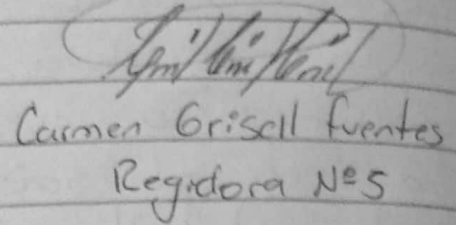 Carmen Grisell Fuentes
Regidora Nº 5